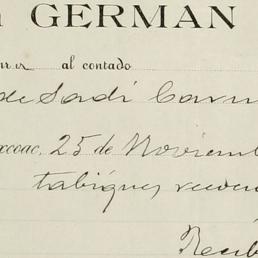 GERMAN
al contado
de Sadi Carn
xcoac, 25 de Noviem
tabiques
Recib